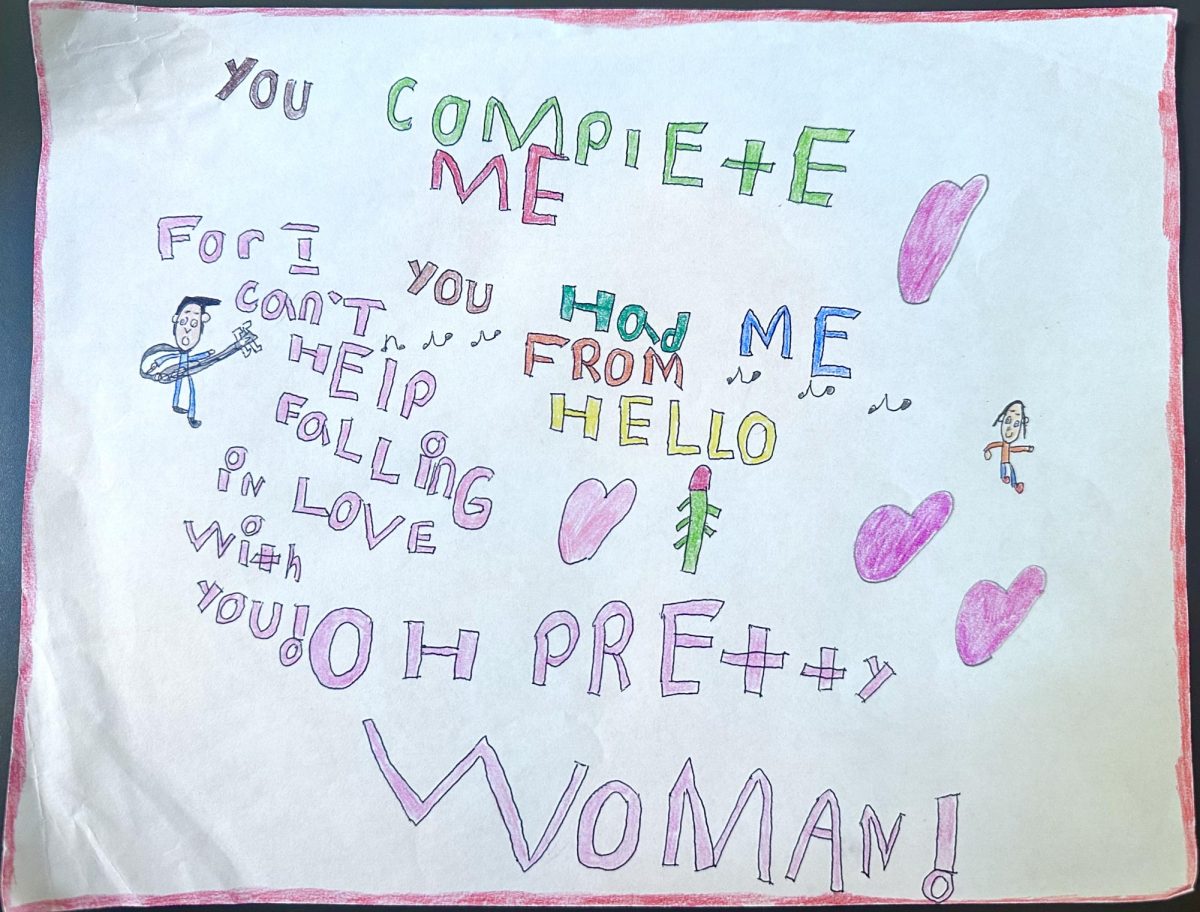 YOU COMPlETE
ME
For I
can't
HElp
FaLLinG
in LOVE
with
YOU!
YOU Had ME
FROM
HELLO
OH PREtty
WOMAN!